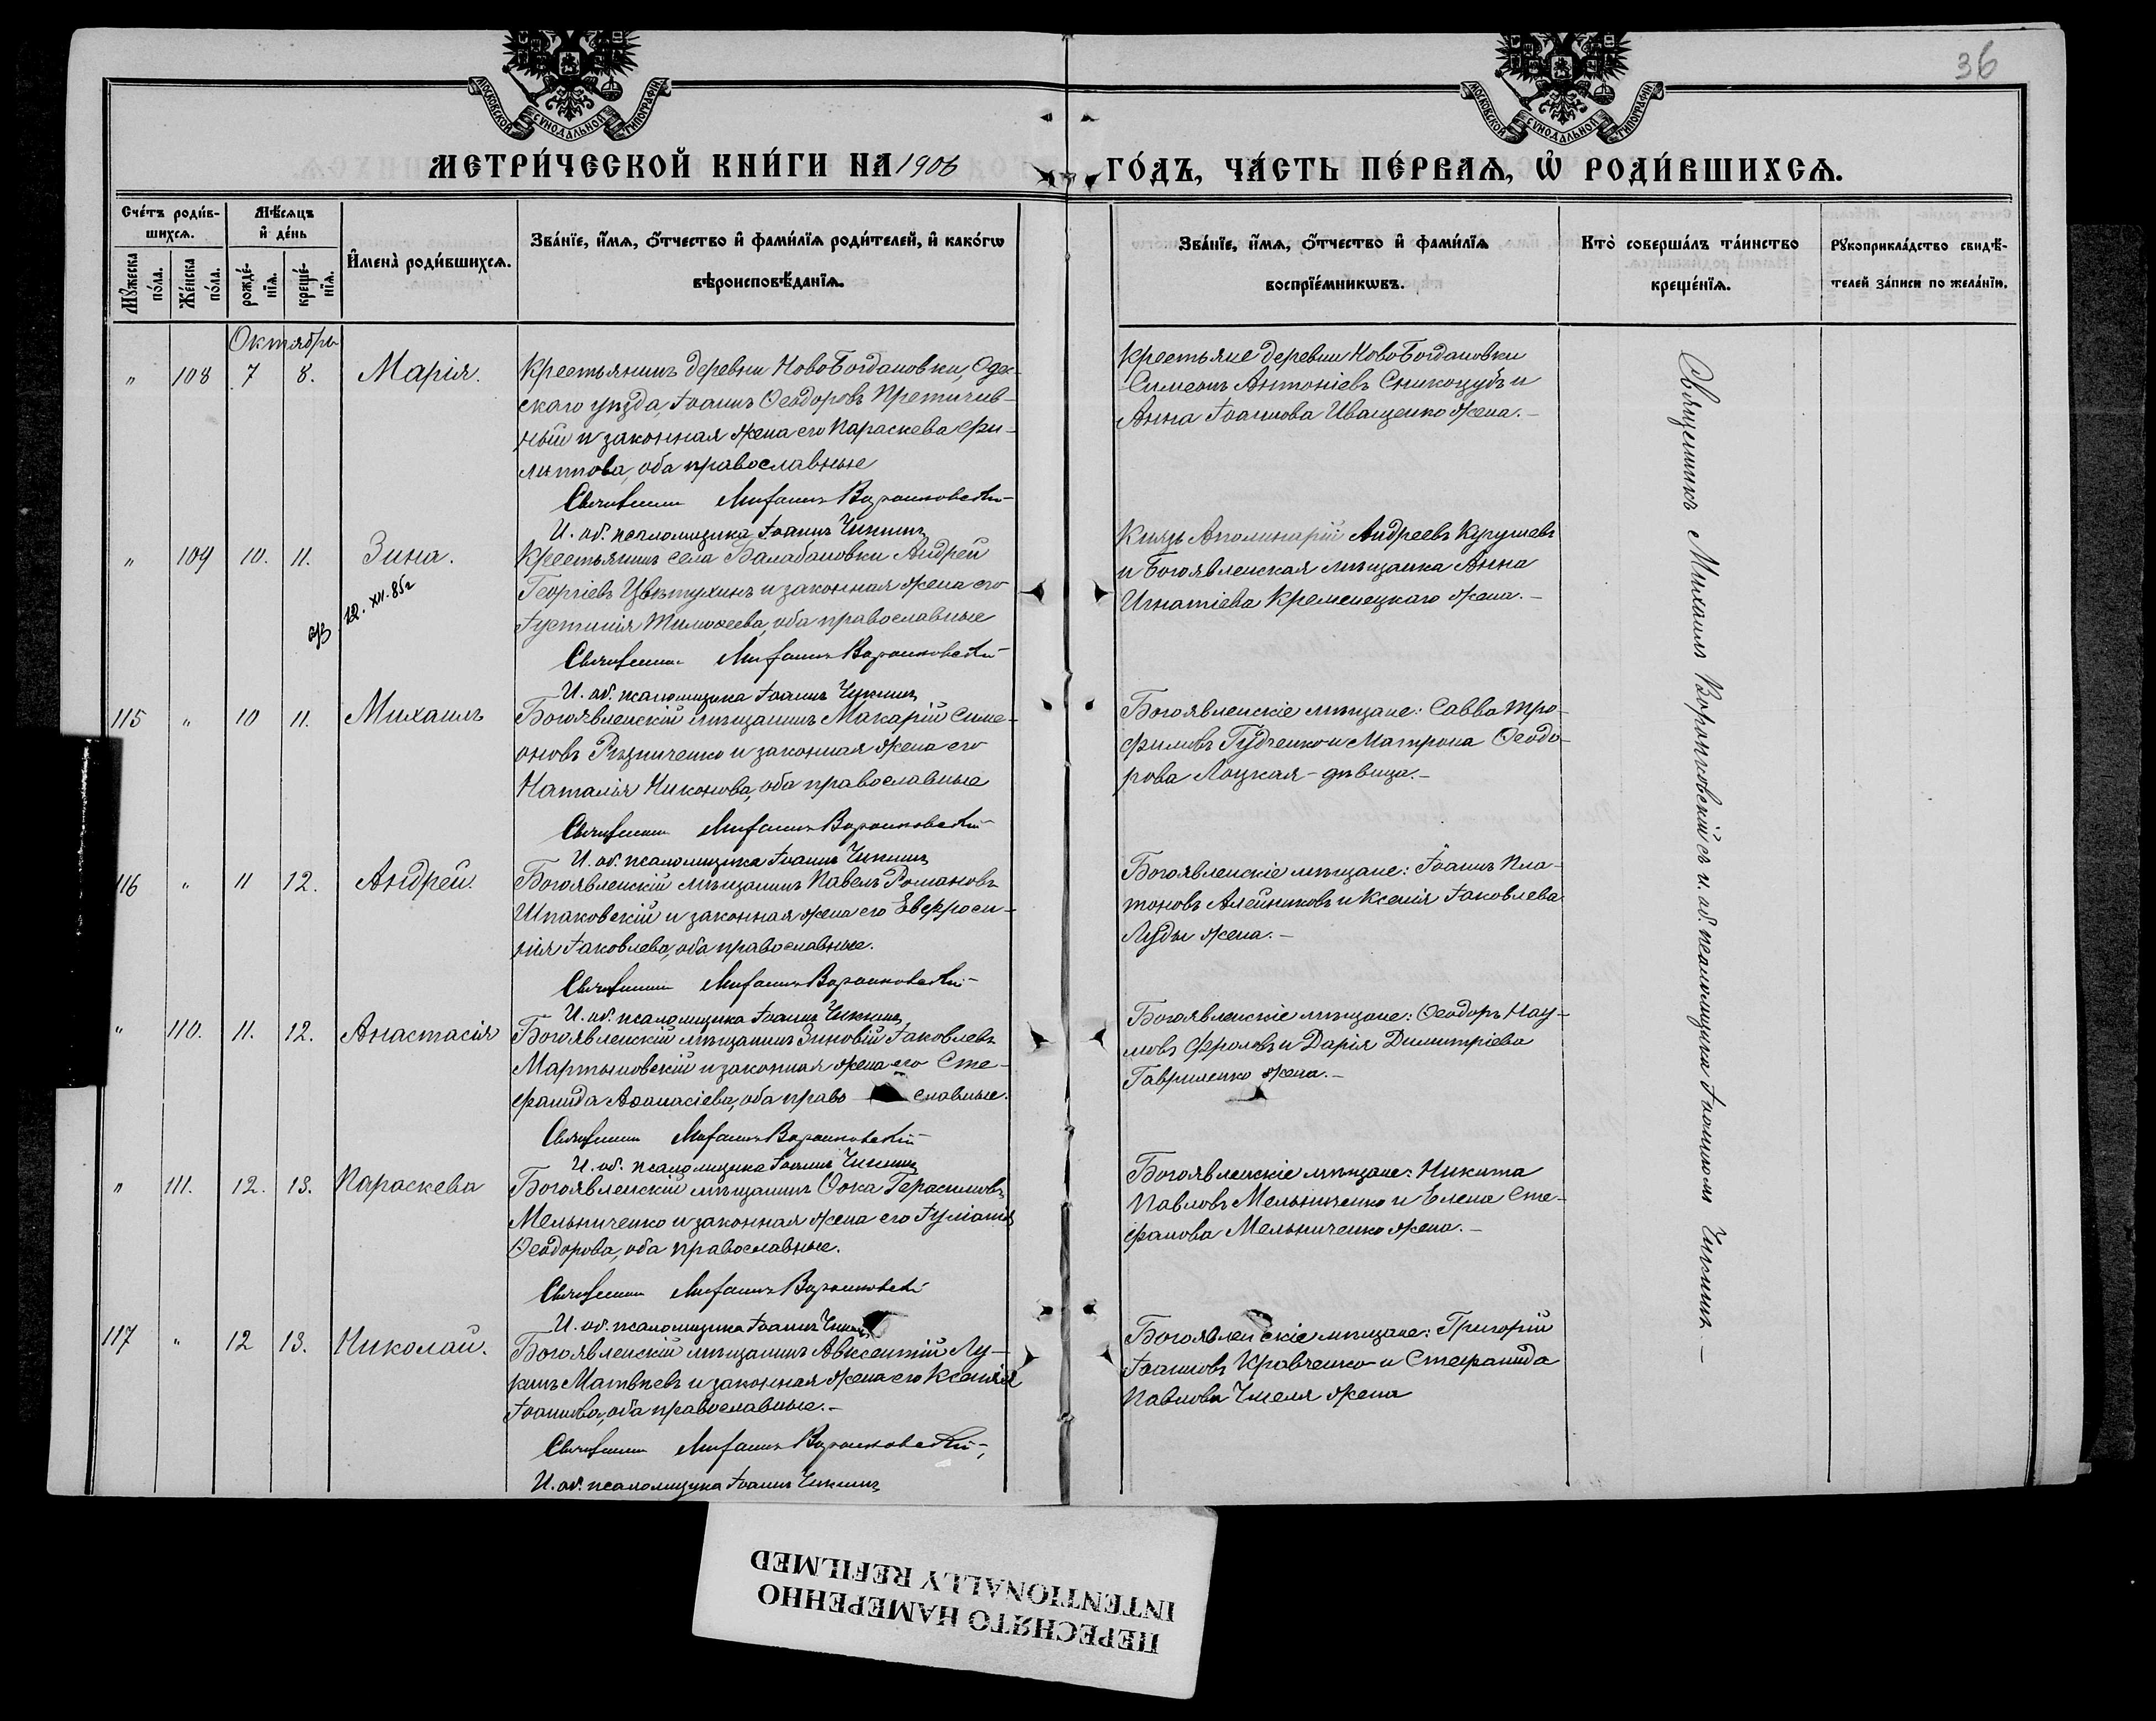 36
МОСКОВСКОЙ СѴНОДАЛЬНОЙ ТИПОГРАФІИ
МОСКОВСКОЙ СѴНОДАЛЬНОЙ ТИПОГРАФІИ
МЕТРИ́ЧЕСКОЙ КНИ́ГИ НА 1906 ГО́ДЪ, ЧА́СТЬ ПЕ́РВАѦ, Ѡ РОДИ́ВШИХСѦ.
Сче́тъ роди́в-
шихсѧ.
Мꙋ́жеска по́ла.
Же́нска по́ла.
Мѣ́сѧцъ
и҆ де́нь
рожде́-
нїѧ.
креще́-
нїѧ.
И҆мена̀ роди́вшихсѧ.
Зва́нїе, и҆́мѧ, ѻ҆́тчество и҆ фами́лїѧ роди́телей, и҆ како́гѡ
вѣроисповѣ́данїѧ.
Зва́нїе, и҆́мѧ, ѻ҆́тчество и҆ фами́лїѧ
воспрїе́мникѡвъ.
Кто̀ соверша́лъ та́инство
креще́нїѧ.
Рꙋкоприкла́дство свидѣ́-
телей за́писи по жела́нїю.
Октябрь
" 108 7 8. Марія.
Крестьянинъ деревни НовоБогдановки, Одес-
скаго уѣзда, Іоаннъ Ѳеодоровъ Претичив-
ный и законная жена его Параскева Фи-
липпова, оба православные
Священникъ Михаилъ Воронковскій
И. об. псаломщика Іоаннъ Чикинъ
Крестьяне деревни НовоБогдановки
Симеонъ Антоніевъ Сникозубъ и
Анна Іоаннова Иващенко жена.-
" 109 10. 11. Зина.
12. XII. 85г
Крестьянинъ села Балабановки Андрей
Георгіевъ Цвѣтухинъ и законная жена его
Іустинія Тимоѳеева, оба православные
Священникъ Михаилъ Воронковскій
И. об. псаломщика Іоаннъ Чикинъ
Князь Аполинарій Андреевъ Курушевъ
и Богоявленская мѣщанка Анна
Игнатіева Кременецкаго жена.-
115 " 10 11. Михаилъ
Богоявленскій мѣщанинъ Макарій Симе-
оновъ Рѣзниченко и законная жена его
Наталія Никонова, оба православные
Священникъ Михаилъ Воронковскій
И. об. псаломщика Іоаннъ Чикинъ
Богоявленскіе мѣщане: Савва Тро-
фимовъ Гудченко и Матрона Ѳеодо-
рова Лоцкая - дѣвица.-
116 " 11 12. Андрей.
Богоявленскій мѣщанинъ Павелъ Романовъ
Шпаковскій и законная жена его Евфроси-
нія Іаковлева, оба православные.
Священникъ Михаилъ Воронковскій
И. об. псаломщика Іоаннъ Чикинъ
Богоявленскіе мѣщане: Іоаннъ Пла-
тоновъ Алейниковъ и Ксенія Іаковлева
Луды жена.-
" 110. 11. 12. Анастасія
Богоявленскій мѣщанинъ Зиновій Іаковлевъ
Мартыновскій и законная жена его Сте-
фанида Аѳанасіева, оба право славные.
Священникъ Михаилъ Воронковскій
И. об. псаломщика Іоаннъ Чикинъ
Богоявленскіе мѣщане: Ѳеодоръ Нау-
мовъ Фроловъ и Дарія Димитріева
Гавриленко жена.-
" 111. 12. 13. Параскева
Богоявленскій мѣщанинъ Ѳока Герасимовъ
Мельниченко и законная жена его Іуліанія
Ѳеодорова, оба православные.
Священникъ Михаилъ Воронковскій
И. об. псаломщика Іоаннъ Чикинъ
Богоявленскіе мѣщане: Никита
Павловъ Мельниченко и Елена Сте-
фанова Мельниченко жена.-
117 " 12 13. Николай.
Богоявленскій мѣщанинъ Авксентій Лу-
кинъ Матвѣевъ и законная жена его Ксенія
Іоаннова, оба православные.-
Священникъ Михаилъ Воронковскій
И. об. псаломщика Іоаннъ Чикинъ
Богоявленскіе мѣщане: Григорій
Іоанновъ Кравченко и Стефанида
Павлова Чмеля жена
Священникъ Михаилъ Воронковскій съ и. об. псаломщика Іоанномъ Чикинымъ.-
ПЕРЕСНЯТО НАМЕРЕННО
INTENTIONALLY REFILMED